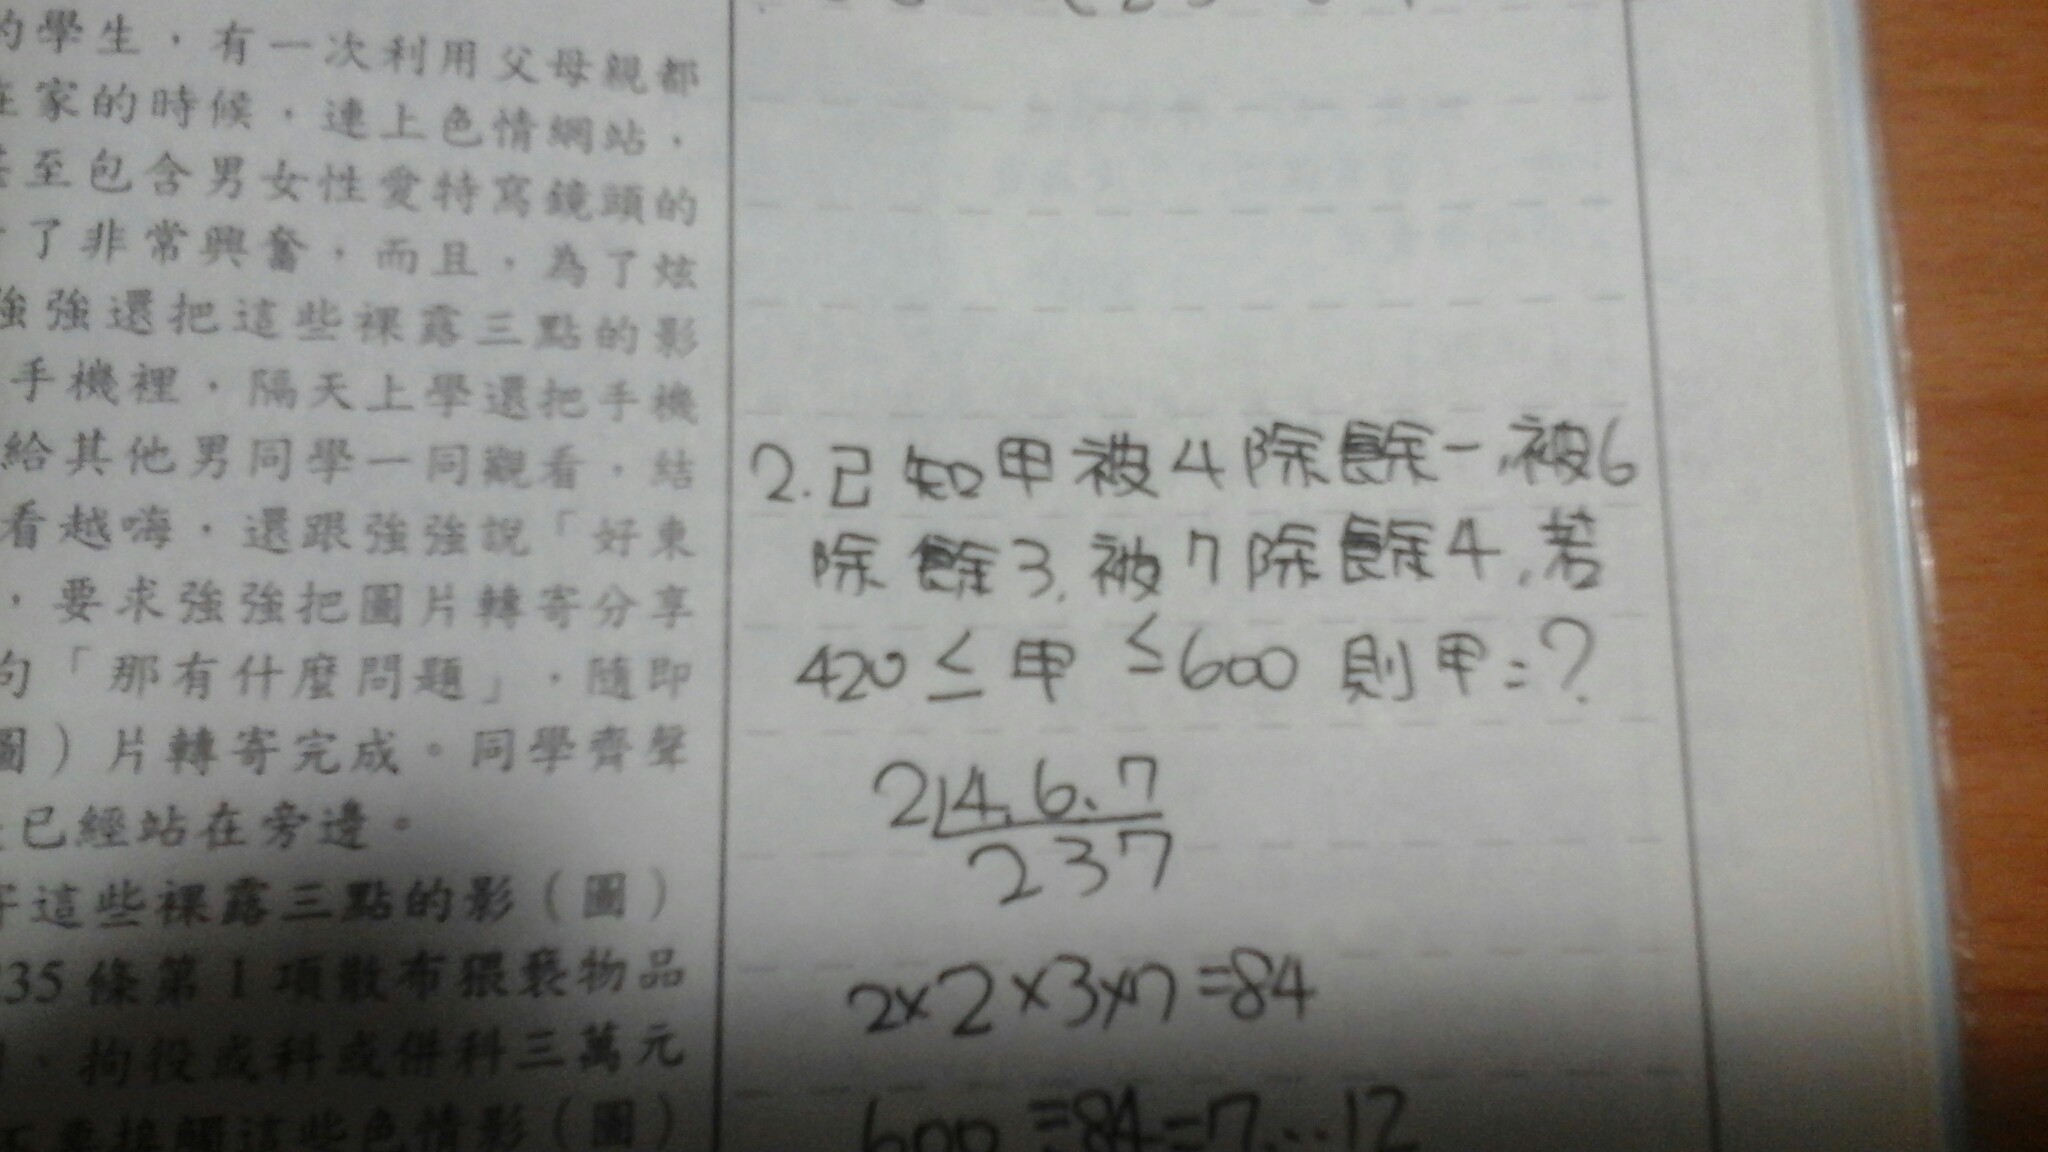 的學生，有一次利用父母親都
在家的時候，連上色情網站，
甚至包含男女性愛特寫鏡頭的
了非常興奮，而且，為了炫
強強還把這些裸露三點的影
手機裡，隔天上學還把手機
給其他男同學一同觀看，結
看越嗨，還跟強強說「好東
，要求強強把圖片轉寄分享
句「那有什麼問題」，隨即
圖）片轉寄完成。同學齊聲
已經站在旁邊。
寄這些裸露三點的影（圖）
35條第1項散布猥褻物品
、拘役或科或併科三萬元
不要接觸這些色情影（圖）
2.已知甲被4除餘一,被6
除餘3,被7除餘4,若
420≤甲≤600則甲=?
2|4,6,7
2 3 7
2×2×3×7=84
600÷84=7…12